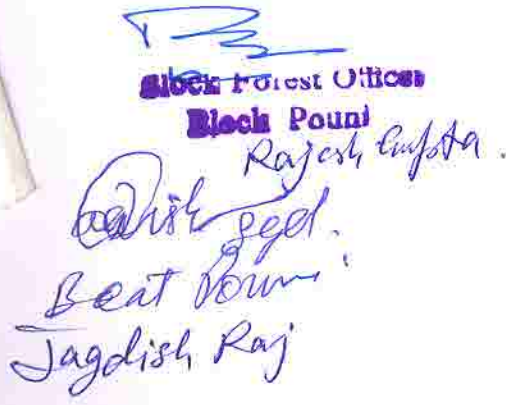 Block Forest Officer
Block Pouni
Rajesh Gupta.
Fgd.
Beat Pouni
Jagdish Raj